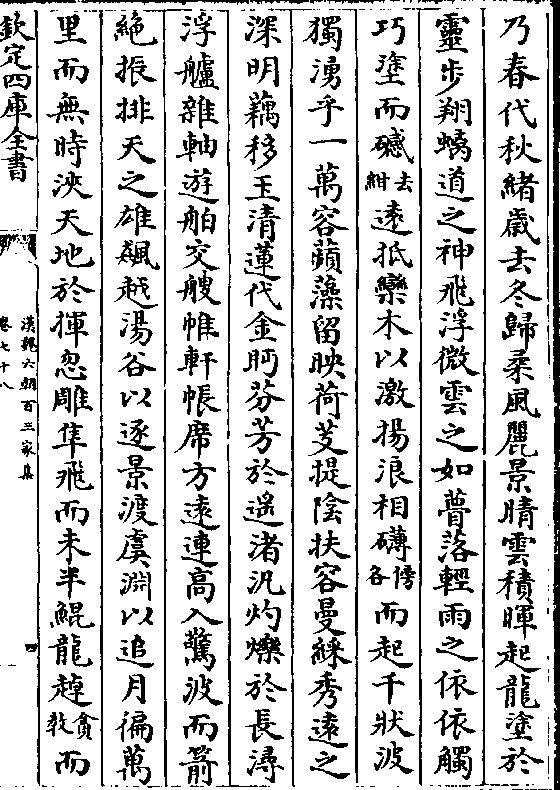 乃春代秋緒歲去冬歸柔風麗景晴雲積暉起龍塗於
靈步翔螭道之神飛浮微雲之如瞢落輕雨之依依觸
巧塗而礚去紺遠抵欒木以激揚浪相礴傍各而起千狀波
獨湧乎一萬容蘋藻留映荷芰提陰扶容曼綵秀遠之
深明藕移玉清蓮代金眄芬芳於遥渚汎灼爍於長潯
浮艫雜軸遊舶交艘帷軒帳席方遠連高入驚波而箭
絶振排天之雄飇越湯谷以逐景渡虞淵以追月徧萬
里而無時浹天地於揮忽雕隼飛而未半鯤龍趠貪教而
欽定四庫全書
漢魏六朝百三家集
卷七十八
四